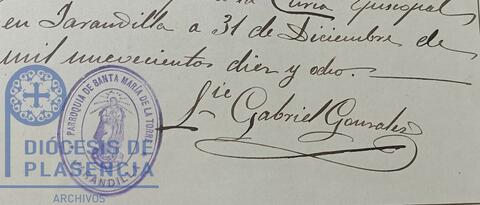 la Curia Episcopal
en Jarandilla a 31 de Diciembre de
mil nuevecientos diez y ocho.
Lic Gabriel Gonzalez
PARROQUIA DE SANTA MARIA DE LA TORRE
JARANDILLA
DIÓCESIS DE
PLASENCIA
ARCHIVOS